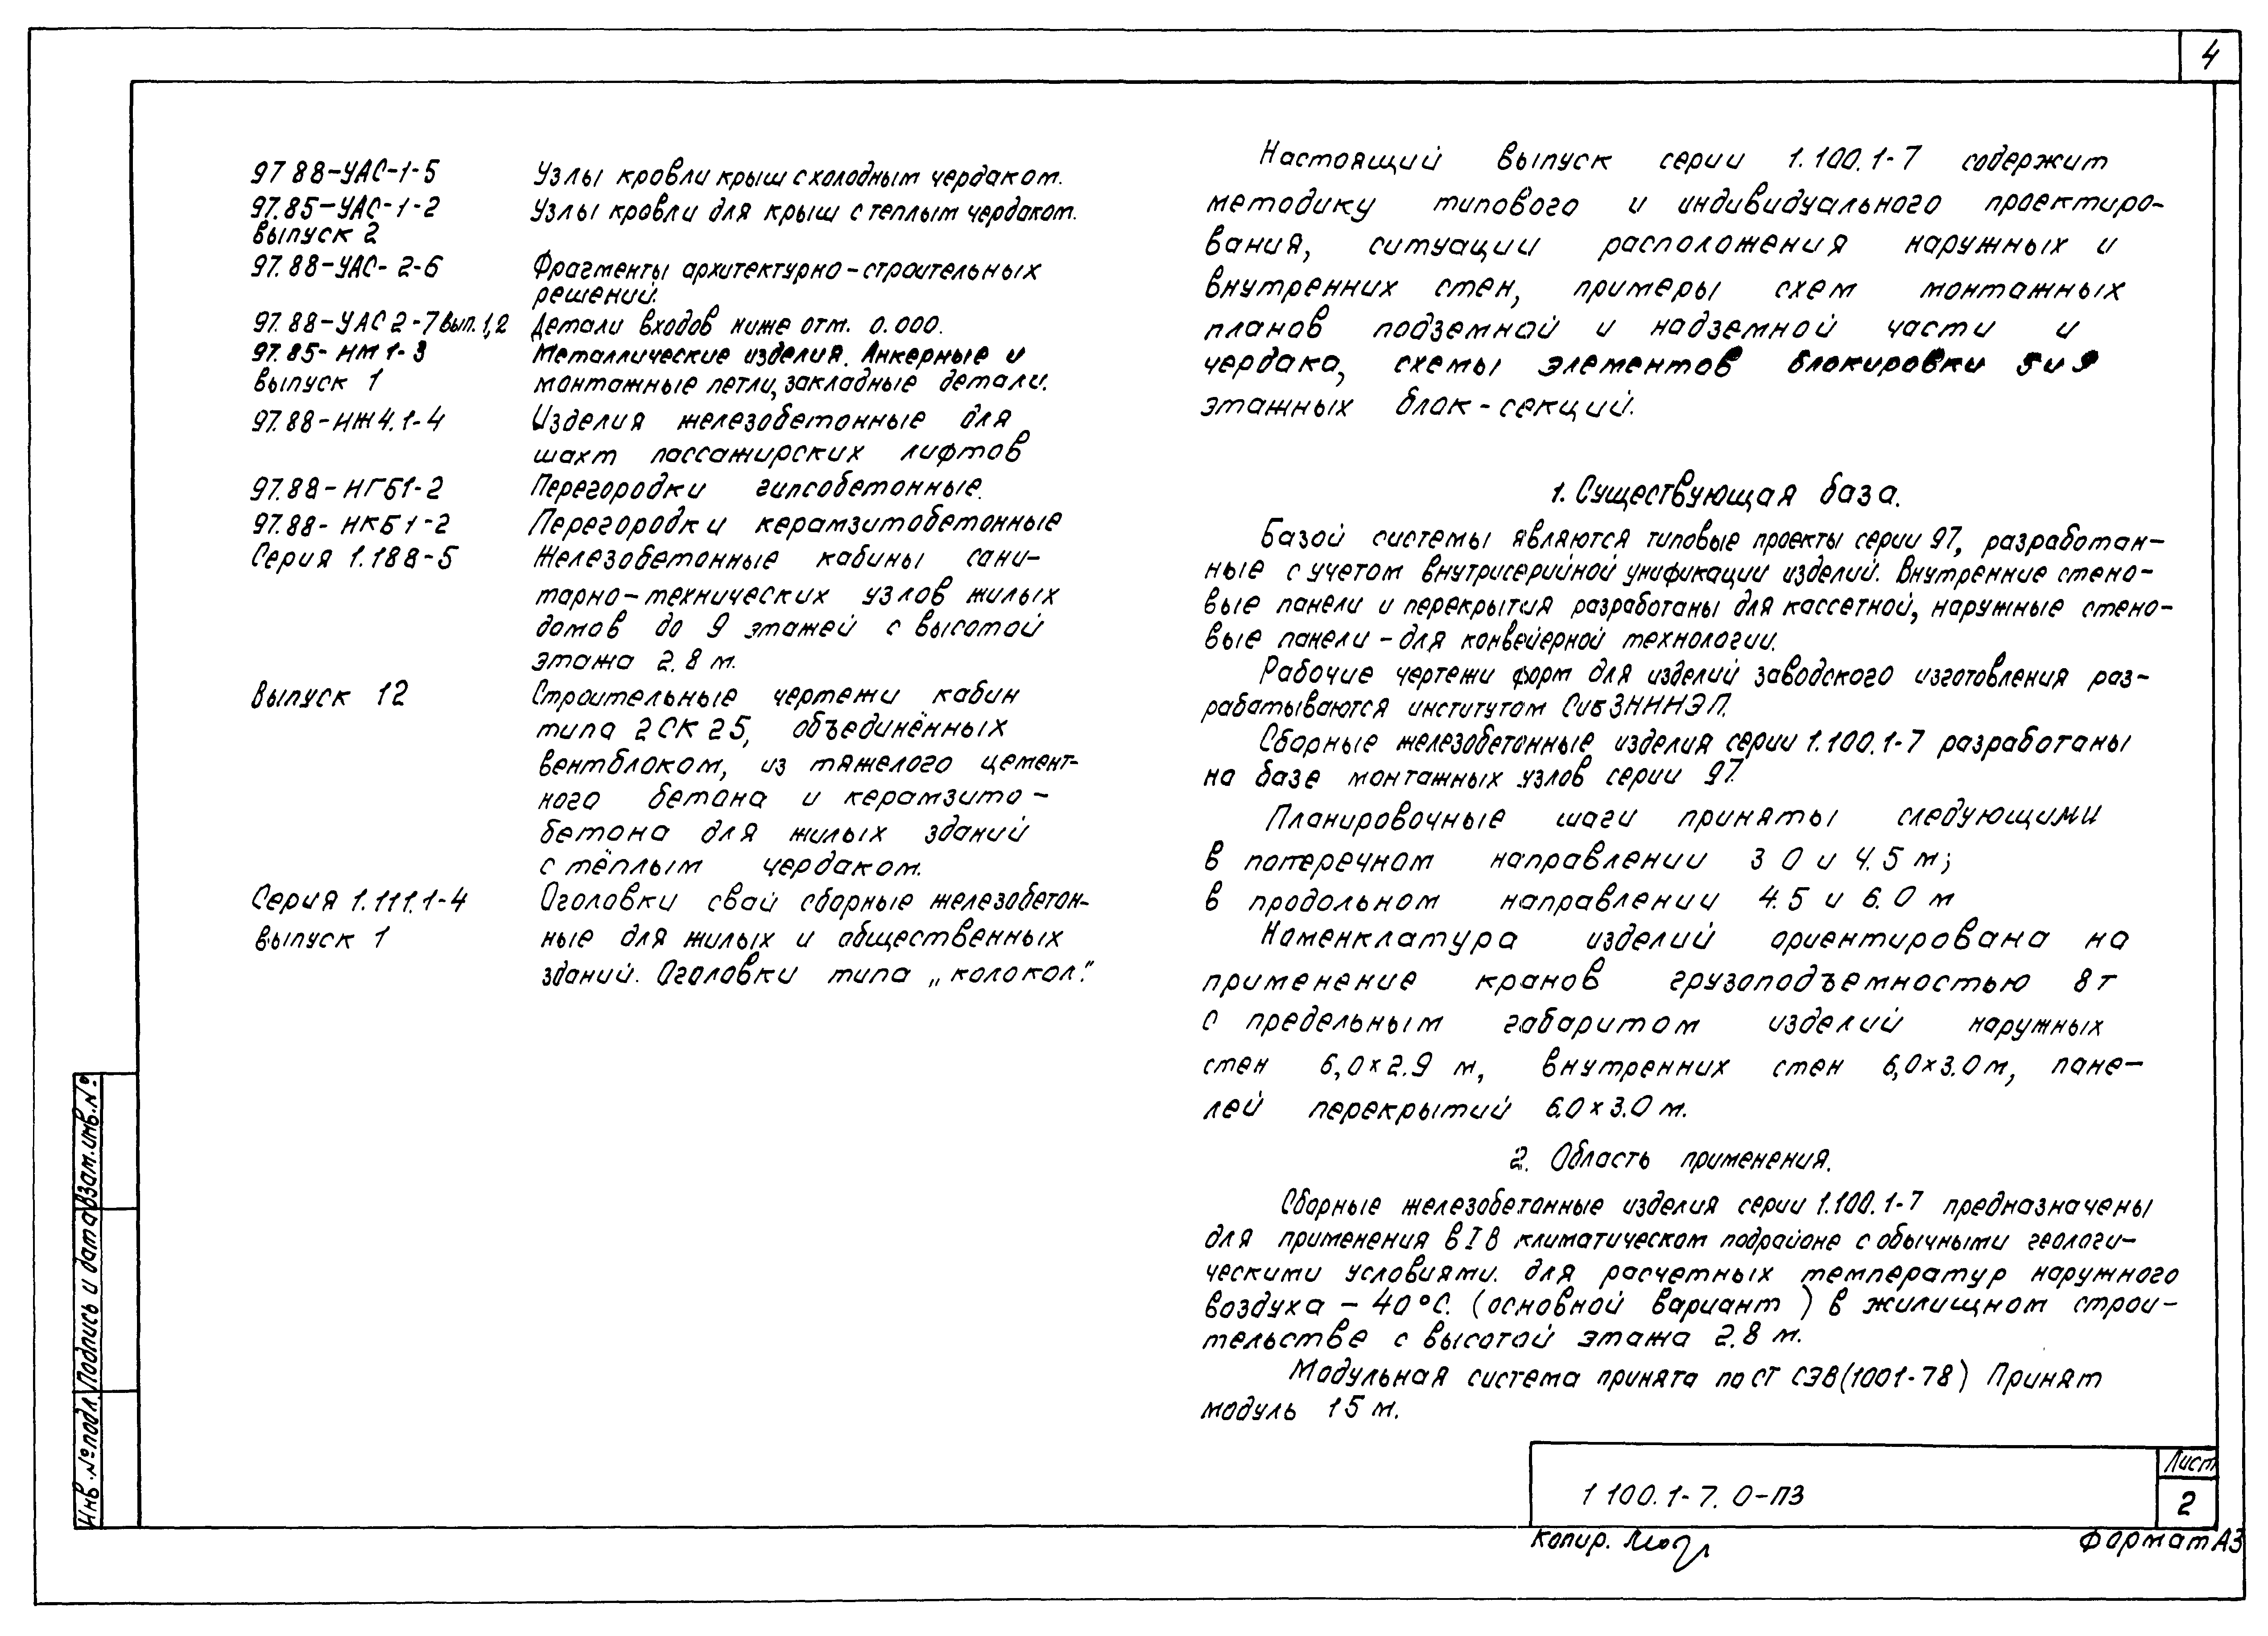 4
97 88-УАС-1-5 Узлы кровли крыш с холодным чердаком.
97.85-УАС-1-2 Узлы кровли для крыш с теплым чердаком.
выпуск 2
97.88-УАС-2-6 Фрагменты архитектурно-строительных
решений.
97.88-УАС 2-7 вып. 1,2 Детали входов ниже отм. 0.000.
97.85-НМ 1-3 Металлические изделия. Анкерные и
выпуск 1 монтажные петли, закладные детали.
97.88-НЖ 4.1-4 Изделия железобетонные для
шахт пассажирских лифтов
97.88-НГБ1-2 Перегородки гипсобетонные.
97.88-НКБ1-2 Перегородки керамзитобетонные
Серия 1.188-5 Железобетонные кабины сани-
тарно-технических узлов жилых
домов до 9 этажей с высотой
этажа 2.8 м.
Выпуск 12 Строительные чертежи кабин
типа 2СК25, объединённых
вентблоком, из тяжелого цемент-
ного бетона и керамзито-
бетона для жилых зданий
с тёплым чердаком.
Серия 1.111.1-4 Оголовки свай сборные железобетон-
выпуск 1 ные для жилых и общественных
зданий. Оголовки типа „колокол".
Настоящий выпуск серии 1.100.1-7 содержит
методику типового и индивидуального проектиро-
вания, ситуации расположения наружных и
внутренних стен, примеры схем монтажных
планов подземной и надземной части и
чердака, схемы элементов блокировки 5 и 9
этажных блок-секций.
1. Существующая база.
Базой системы являются типовые проекты серии 97, разработан-
ные с учетом внутрисерийной унификации изделий. Внутренние стено-
вые панели и перекрытия разработаны для кассетной, наружные стено-
вые панели - для конвейерной технологии.
Рабочие чертежи форм для изделий заводского изготовления раз-
рабатываются институтом СибЗНИИЭП.
Сборные железобетонные изделия серии 1.100.1-7 разработаны
на базе монтажных узлов серии 97.
Планировочные шаги приняты следующими
в поперечном направлении 3 0 и 4.5 м;
в продольном направлении 4.5 и 6.0 м
Номенклатура изделий ориентирована на
применение кранов грузоподъемностью 8т
с предельным габаритом изделий наружных
стен 6,0×2.9 м, внутренних стен 6,0×3.0м, пане-
лей перекрытий 6.0×3.0 м.
2. Область применения.
Сборные железобетонные изделия серии 1.100.1-7 предназначены
для применения в I В климатическом подрайоне с обычными геологи-
ческими условиями. для расчетных температур наружного
воздуха - 40°С. (основной вариант) в жилищном строи-
тельстве с высотой этажа 2.8 м.
Модульная система принята по СТ СЭВ (1001-78) Принят
модуль 15 м.
Инв. № подл. Подпись и дата Взам. инв. №
1 100.1-7. 0-ПЗ
Лист
2
Копир.
Формат А3